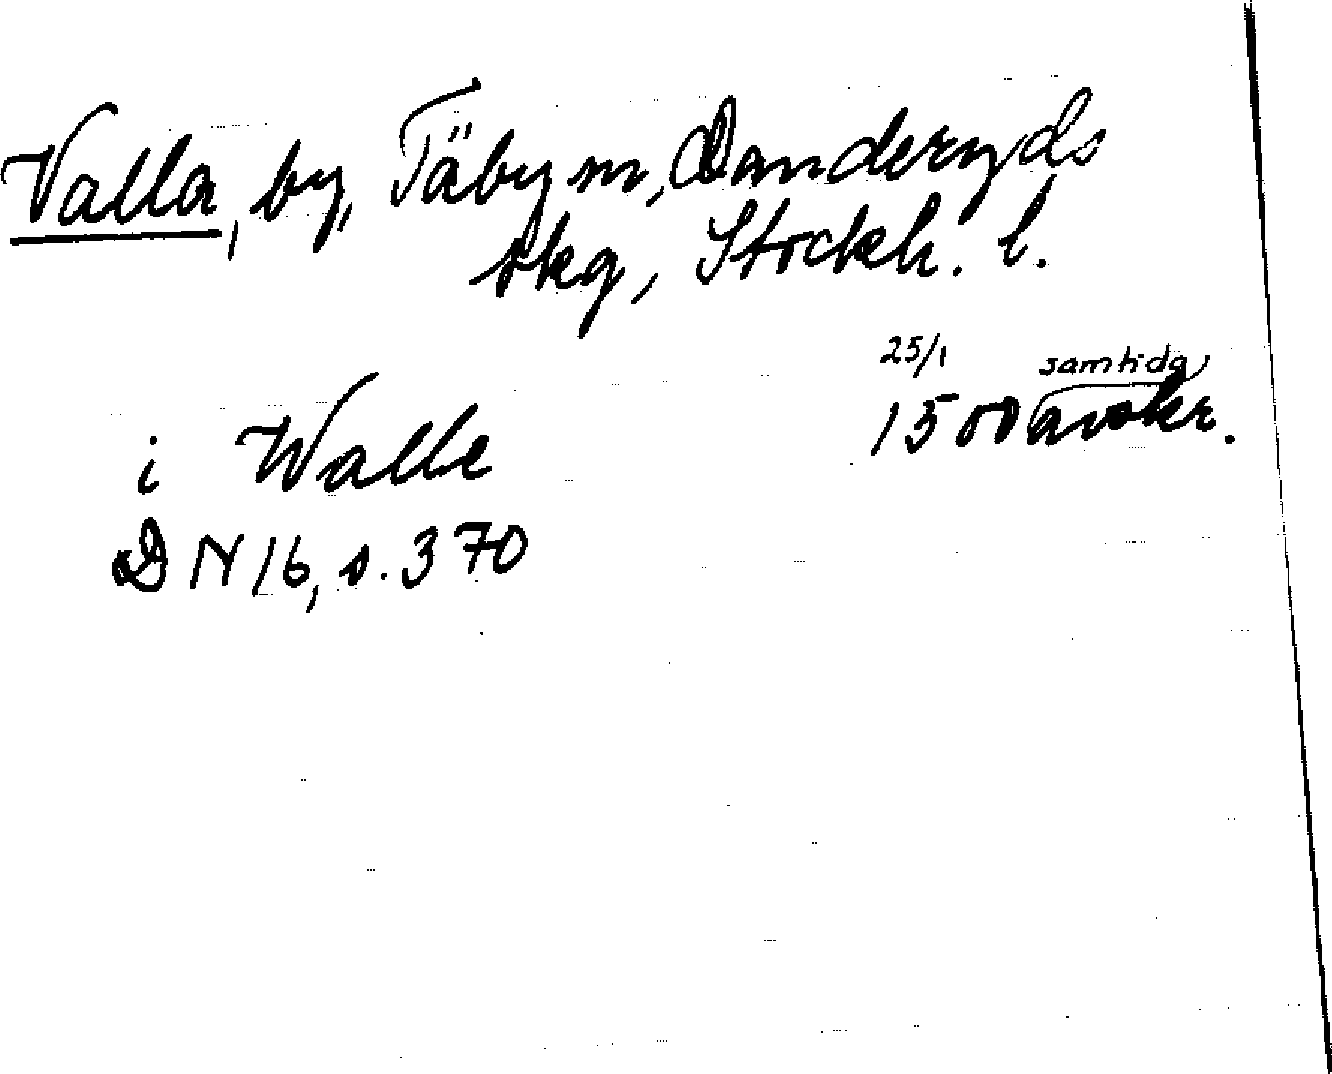 Valla, by, Täby sn, Danderyds
skg, Stockh. l.
25/1 samtida
i Walle 1500 avskr.
DN 16, s. 370